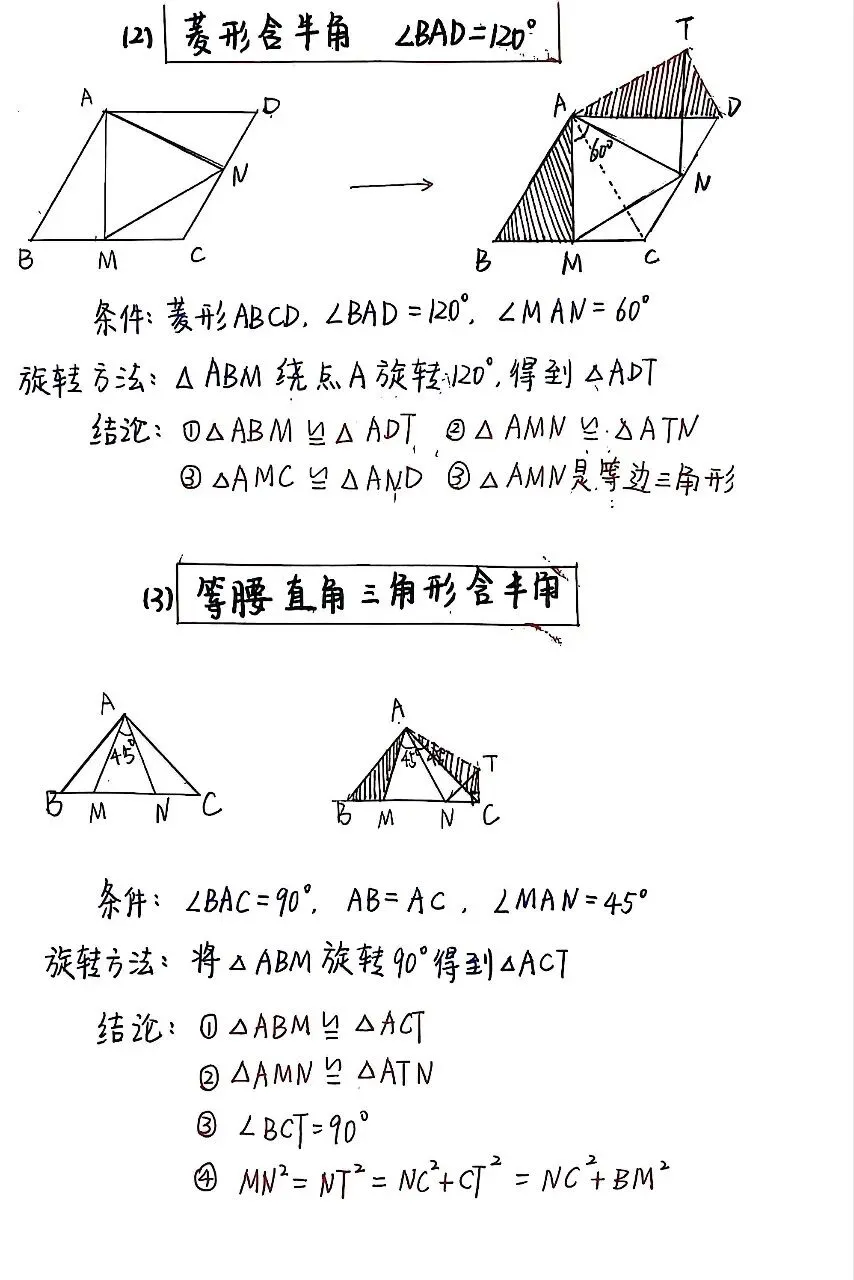 (2) 菱形含半角 ∠BAD=120°
A D N B M C
T A D 60° N B M C
条件: 菱形ABCD, ∠BAD=120°, ∠MAN=60°
旋转方法: △ABM绕点A旋转120°,得到△ADT
结论: ①△ABM≌△ADT ②△AMN≌△ATN
③△AMC≌△AND ③△AMN是等边三角形
(3) 等腰直角三角形含半角
A 45° B M N C
A 45° 45° T B M N C
条件: ∠BAC=90°, AB=AC, ∠MAN=45°
旋转方法: 将△ABM旋转90°得到△ACT
结论: ①△ABM≌△ACT
②△AMN≌△ATN
③ ∠BCT=90°
④ MN²=NT²=NC²+CT²=NC²+BM²